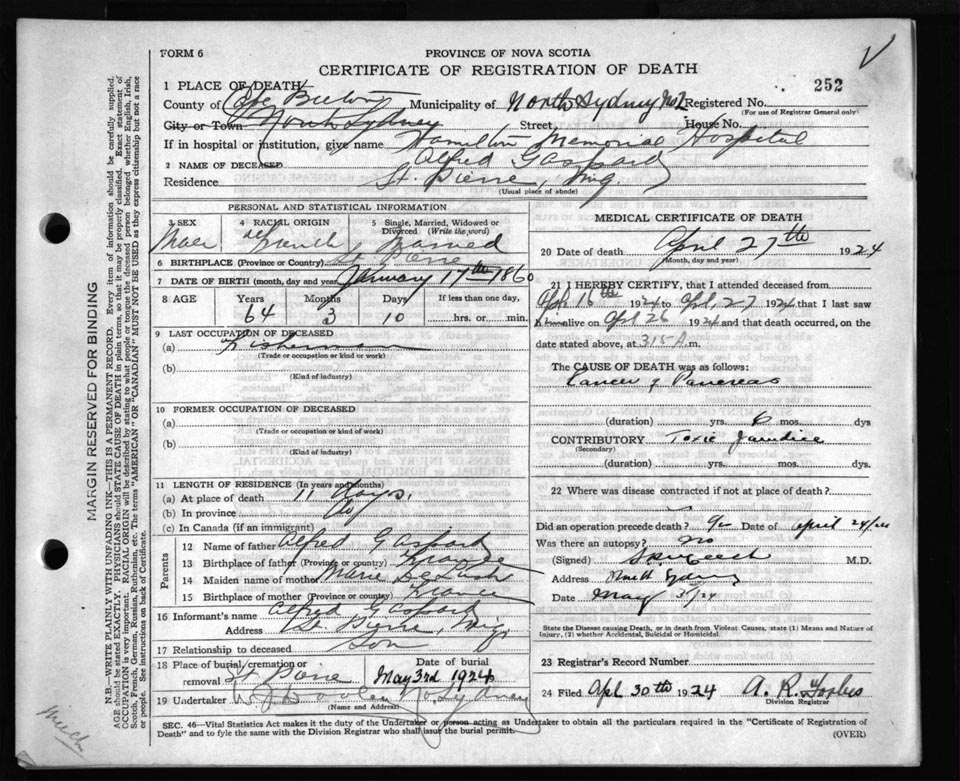 FORM 6
PROVINCE OF NOVA SCOTIA
CERTIFICATE OF REGISTRATION OF DEATH
252
1 PLACE OF DEATH
County of Cape Breton Municipality of North Sydney No 2 Registered No.
(For use of Registrar General only)
City or Town North Sydney Street, House No.
If in hospital or institution, give name Hamilton Memorial Hospital
2 NAME OF DECEASED Alfred Gaspard
Residence St. Pierre, Miq.
(Usual place of abode)
PERSONAL AND STATISTICAL INFORMATION
3 SEX 4 RACIAL ORIGIN 5 Single, Married, Widowed or Divorced (Write the word)
Male French Married
6 BIRTHPLACE (Province or Country) St Pierre
7 DATE OF BIRTH (month, day and year) January 17th 1860
8 AGE Years Months Days If less than one day,
64 3 10 hrs. or min.
9 LAST OCCUPATION OF DECEASED
(a) Fisherman
(Trade or occupation or kind or work)
(b)
(Kind of industry)
10 FORMER OCCUPATION OF DECEASED
(a)
(Trade or occupation or kind of work)
(b)
(Kind of industry)
11 LENGTH OF RESIDENCE (In years and months)
(a) At place of death 11 days.
(b) In province do
(c) In Canada (if an immigrant)
Parents
12 Name of father Alfred Gaspard
13 Birthplace of father (Province or country) France
14 Maiden name of mother Marie
15 Birthplace of mother (Province or country) France
16 Informant's name Alfred Gaspard
Address St. Pierre, Miq.
17 Relationship to deceased Son
18 Place of burial, cremation or removal St Pierre Date of burial May 3rd 1924
19 Undertaker W J Dooley No. Sydney
(Name and Address)
MEDICAL CERTIFICATE OF DEATH
20 Date of death April 27th 1924
(Month, day and year)
21 I HEREBY CERTIFY, that I attended deceased from
Apl 16th 1924 to Apl, 27 1924 that I last saw
him alive on Apl 26 1924 and that death occurred, on the
date stated above, at 315 A.m.
The CAUSE OF DEATH was as follows:
Cancer of Pancreas
(duration) yrs. 6 mos. dys
CONTRIBUTORY Toxic Jaundice
(Secondary)
(duration) yrs. mos. dys.
22 Where was disease contracted if not at place of death?
Did an operation precede death? Date of April 24/24
Was there an autopsy? no
(Signed) M.D.
Address North Sydney
Date May 3/24
State the Disease causing Death, or in death from Violent Causes, state (1) Means and Nature of Injury, (2) whether Accidental, Suicidal or Homicidal.
23 Registrar's Record Number
24 Filed Apl 30th 1924 A. R. Forbes
Division Registrar
SEC. 46—Vital Statistics Act makes it the duty of the Undertaker or person acting as Undertaker to obtain all the particulars required in the "Certificate of Registration of
Death" and to fyle the same with the Division Registrar who shall issue the burial permit.
(OVER)
MARGIN RESERVED FOR BINDING
N.B.—WRITE PLAINLY WITH UNFADING INK—THIS IS A PERMANENT RECORD. Every item of information should be carefully supplied.
AGE should be stated EXACTLY. PHYSICIANS should STATE CAUSE OF DEATH in plain terms, so that it may be properly classified. Exact statement of
OCCUPATION is very important. RACIAL ORIGIN will be described by stating to what people or tongue the deceased person belonged whether English, Irish,
Scotch, French, German, Russian, Ruthenian, etc. The terms "AMERICAN" or "CANADIAN" MUST NOT BE USED as they express citizenship but not a race
or people. See instructions on back of Certificate.